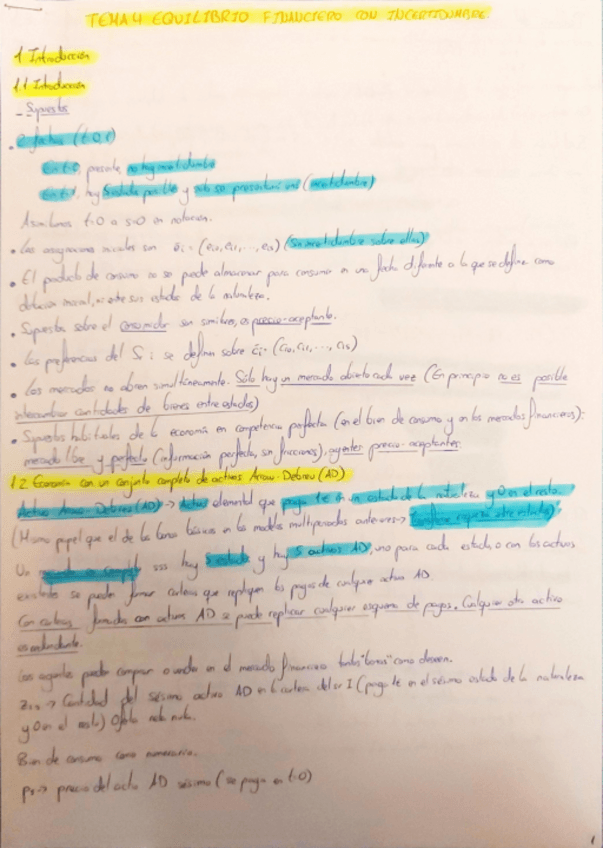 TEMA 4 EQUILIBRIO FINANCIERO CON INCERTIDUMBRE.
1 Introducción
1.1 Introducción
- Supuestos
• 2 fechas (t=0,1)
En t=0, presente, no hay incertidumbre
En t=1, hay S estados posibles y solo se presentará uno (incertidumbre)
Asimilamos t=0 a s=0 en notación.
• Las asignaciones iniciales son ēi = (ei0, ei1, ..., eis) (Sin incertidumbre sobre ellas)
• El producto de consumo no se puede almacenar para consumir en una fecha diferente a la que se define como
dotación inicial, ni entre sus estados de la naturaleza.
• Supuestos sobre el consumidor son similares, es precio-aceptante.
• Las preferencias del Sr i se definen sobre c̄i = (ci0, ci1, ..., cis)
• Los mercados no abren simultáneamente. Sólo hay un mercado abierto cada vez (En principio no es posible
intercambiar cantidades de bienes entre estados)
• Supuestos habituales de la economía en competencia perfecta (en el bien de consumo y en los mercados financieros):
mercado libre y perfecto (información perfecta, sin fricciones), agentes precio-aceptantes
1.2 Economía con un conjunto completo de activos Arrow-Debreu (AD)
Activo Arrow-Debreu (AD) → Activo elemental que paga 1€ en un estado de la naturaleza y 0 en el resto
(Mismo papel que el de los bonos básicos en los modelos multiperiodos anteriores → transfiere riqueza entre estados)
Un mercado es completo sss hay S estados y hay S activos AD, uno para cada estado o con los activos
existentes se pueden formar carteras que repliquen los pagos de cualquier activo AD
Con carteras formadas con activos AD se puede replicar cualquier esquema de pagos. Cualquier otro activo
es redundante.
Los agentes pueden comprar o vender en el mercado financiero tantos "bonos" como deseen.
→ Cantidad del sésimo activo AD en la cartera del sr I (paga 1€ en el sésimo estado de la naturaleza
y 0 en el resto) Oferta neta nula.
Bien de consumo como numerario.
ps → precio del activo AD sésimo (se paga en t=0)
1